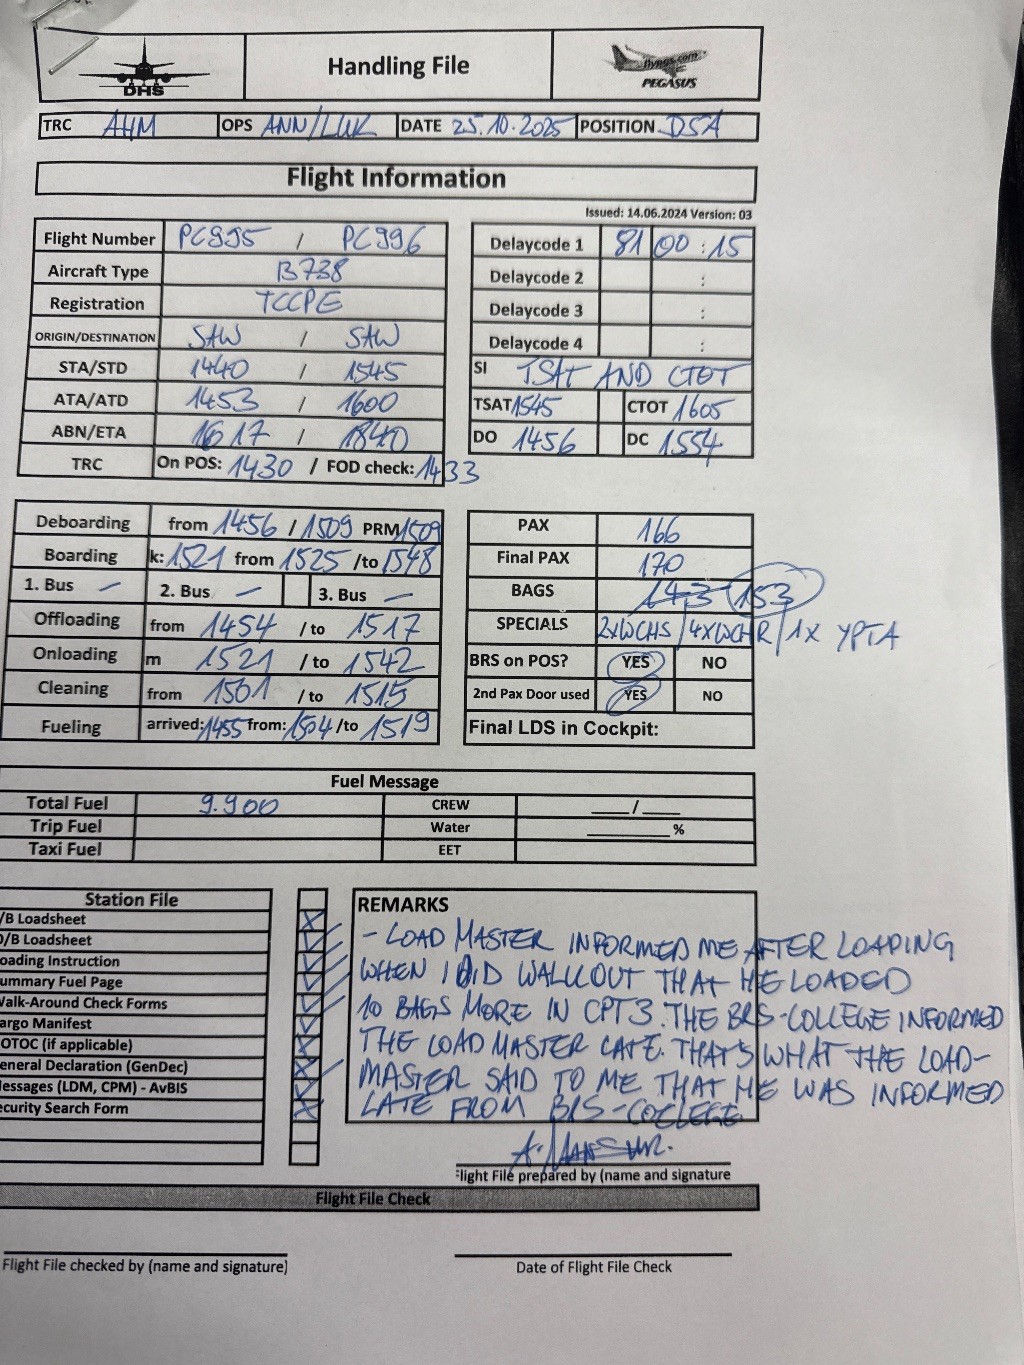 DHS
Handling File
flypgs.com
PEGASUS
TRC AHM OPS ANN/LUK DATE 25.10.2025 POSITION DSA
Flight Information
Issued: 14.06.2024 Version: 03
Flight Number PC995 / PC996
Aircraft Type B738
Registration TCCPE
ORIGIN/DESTINATION SAW / SAW
STA/STD 1440 / 1545
ATA/ATD 1453 / 1600
ABN/ETA 1617 / 1840
TRC On POS: 1430 / FOD check: 1433
Delaycode 1 81 00:15
Delaycode 2 :
Delaycode 3 :
Delaycode 4 :
SI TSAT AND CTOT
TSAT 1545 CTOT 1605
DO 1456 DC 1554
Deboarding from 1456 / 1509 PRM 1509
Boarding k: 1521 from 1525 /to 1548
1. Bus — 2. Bus — 3. Bus —
Offloading from 1454 /to 1517
Onloading m 1521 /to 1542
Cleaning from 1501 /to 1515
Fueling arrived: 1455 from: 1504 /to 1519
PAX 166
Final PAX 170
BAGS 143 153
SPECIALS 2xWCHS / 4xWCHR / 1x YPTA
BRS on POS? YES NO
2nd Pax Door used YES NO
Final LDS in Cockpit:
Fuel Message
Total Fuel 9.900 CREW ____/____
Trip Fuel Water ________%
Taxi Fuel EET
Station File
/B Loadsheet
O/B Loadsheet
oading Instruction
ummary Fuel Page
Walk-Around Check Forms
argo Manifest
OTOC (if applicable)
eneral Declaration (GenDec)
essages (LDM, CPM) - AvBIS
ecurity Search Form
REMARKS
- LOAD MASTER INFORMED ME AFTER LOADING
WHEN I DID WALKOUT THAT HE LOADED
10 BAGS MORE IN CPT 3. THE BRS-COLLEGE INFORMED
THE LOAD MASTER LATE. THAT'S WHAT THE LOAD-
MASTER SAID TO ME THAT HE WAS INFORMED
LATE FROM BRS-COLLEGE
A. MANSUR.
Flight File prepared by (name and signature
Flight File Check
Flight File checked by (name and signature)
Date of Flight File Check